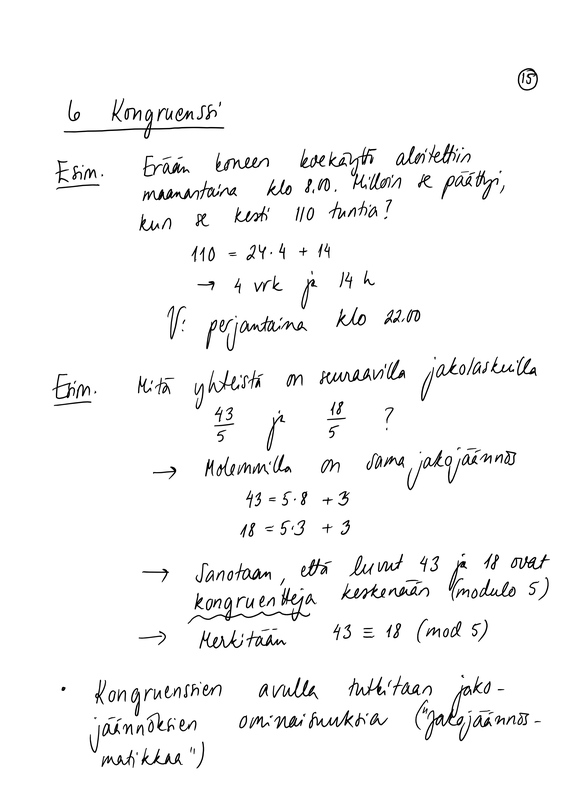 15
6 Kongruenssi
Esim. Erään koneen koekäyttö aloitettiin
maanantaina klo 8.00. Milloin se päättyi,
kun se kesti 110 tuntia?
110 = 24·4 + 14
→ 4 vrk ja 14 h
V: perjantaina klo 22.00
Esim. Mitä yhteistä on seuraavilla jakolaskuilla
43/5 ja 18/5 ?
→ Molemmilla on sama jakojäännös
43 = 5·8 + 3
18 = 5·3 + 3
→ Sanotaan, että luvut 43 ja 18 ovat
kongruentteja keskenään (modulo 5)
→ Merkitään 43 ≡ 18 (mod 5)
• Kongruenssien avulla tutkitaan jako-
jäännöksien ominaisuuksia ("Jakojäännös-
matikkaa")